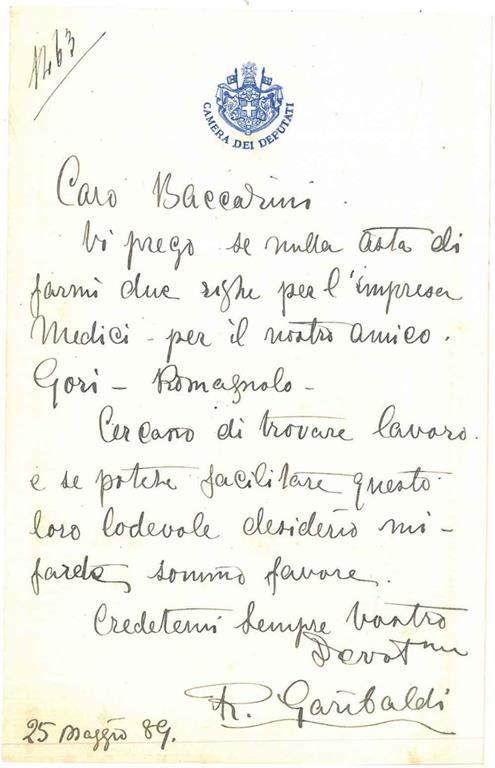 1463
CAMERA DEI DEPUTATI
Caro Baccarini.
Vi prego se nulla asta di
farmi due righe per l'impresa
Medici - per il nostro amico.
Gori - Romagnolo -
Cercano di trovare lavoro.
e se potete facilitare questo
loro lodevole desiderio mi -
farete sommo favore.
Credetemi sempre vostro
Devotmo
R. Garibaldi
25 Maggio 89.